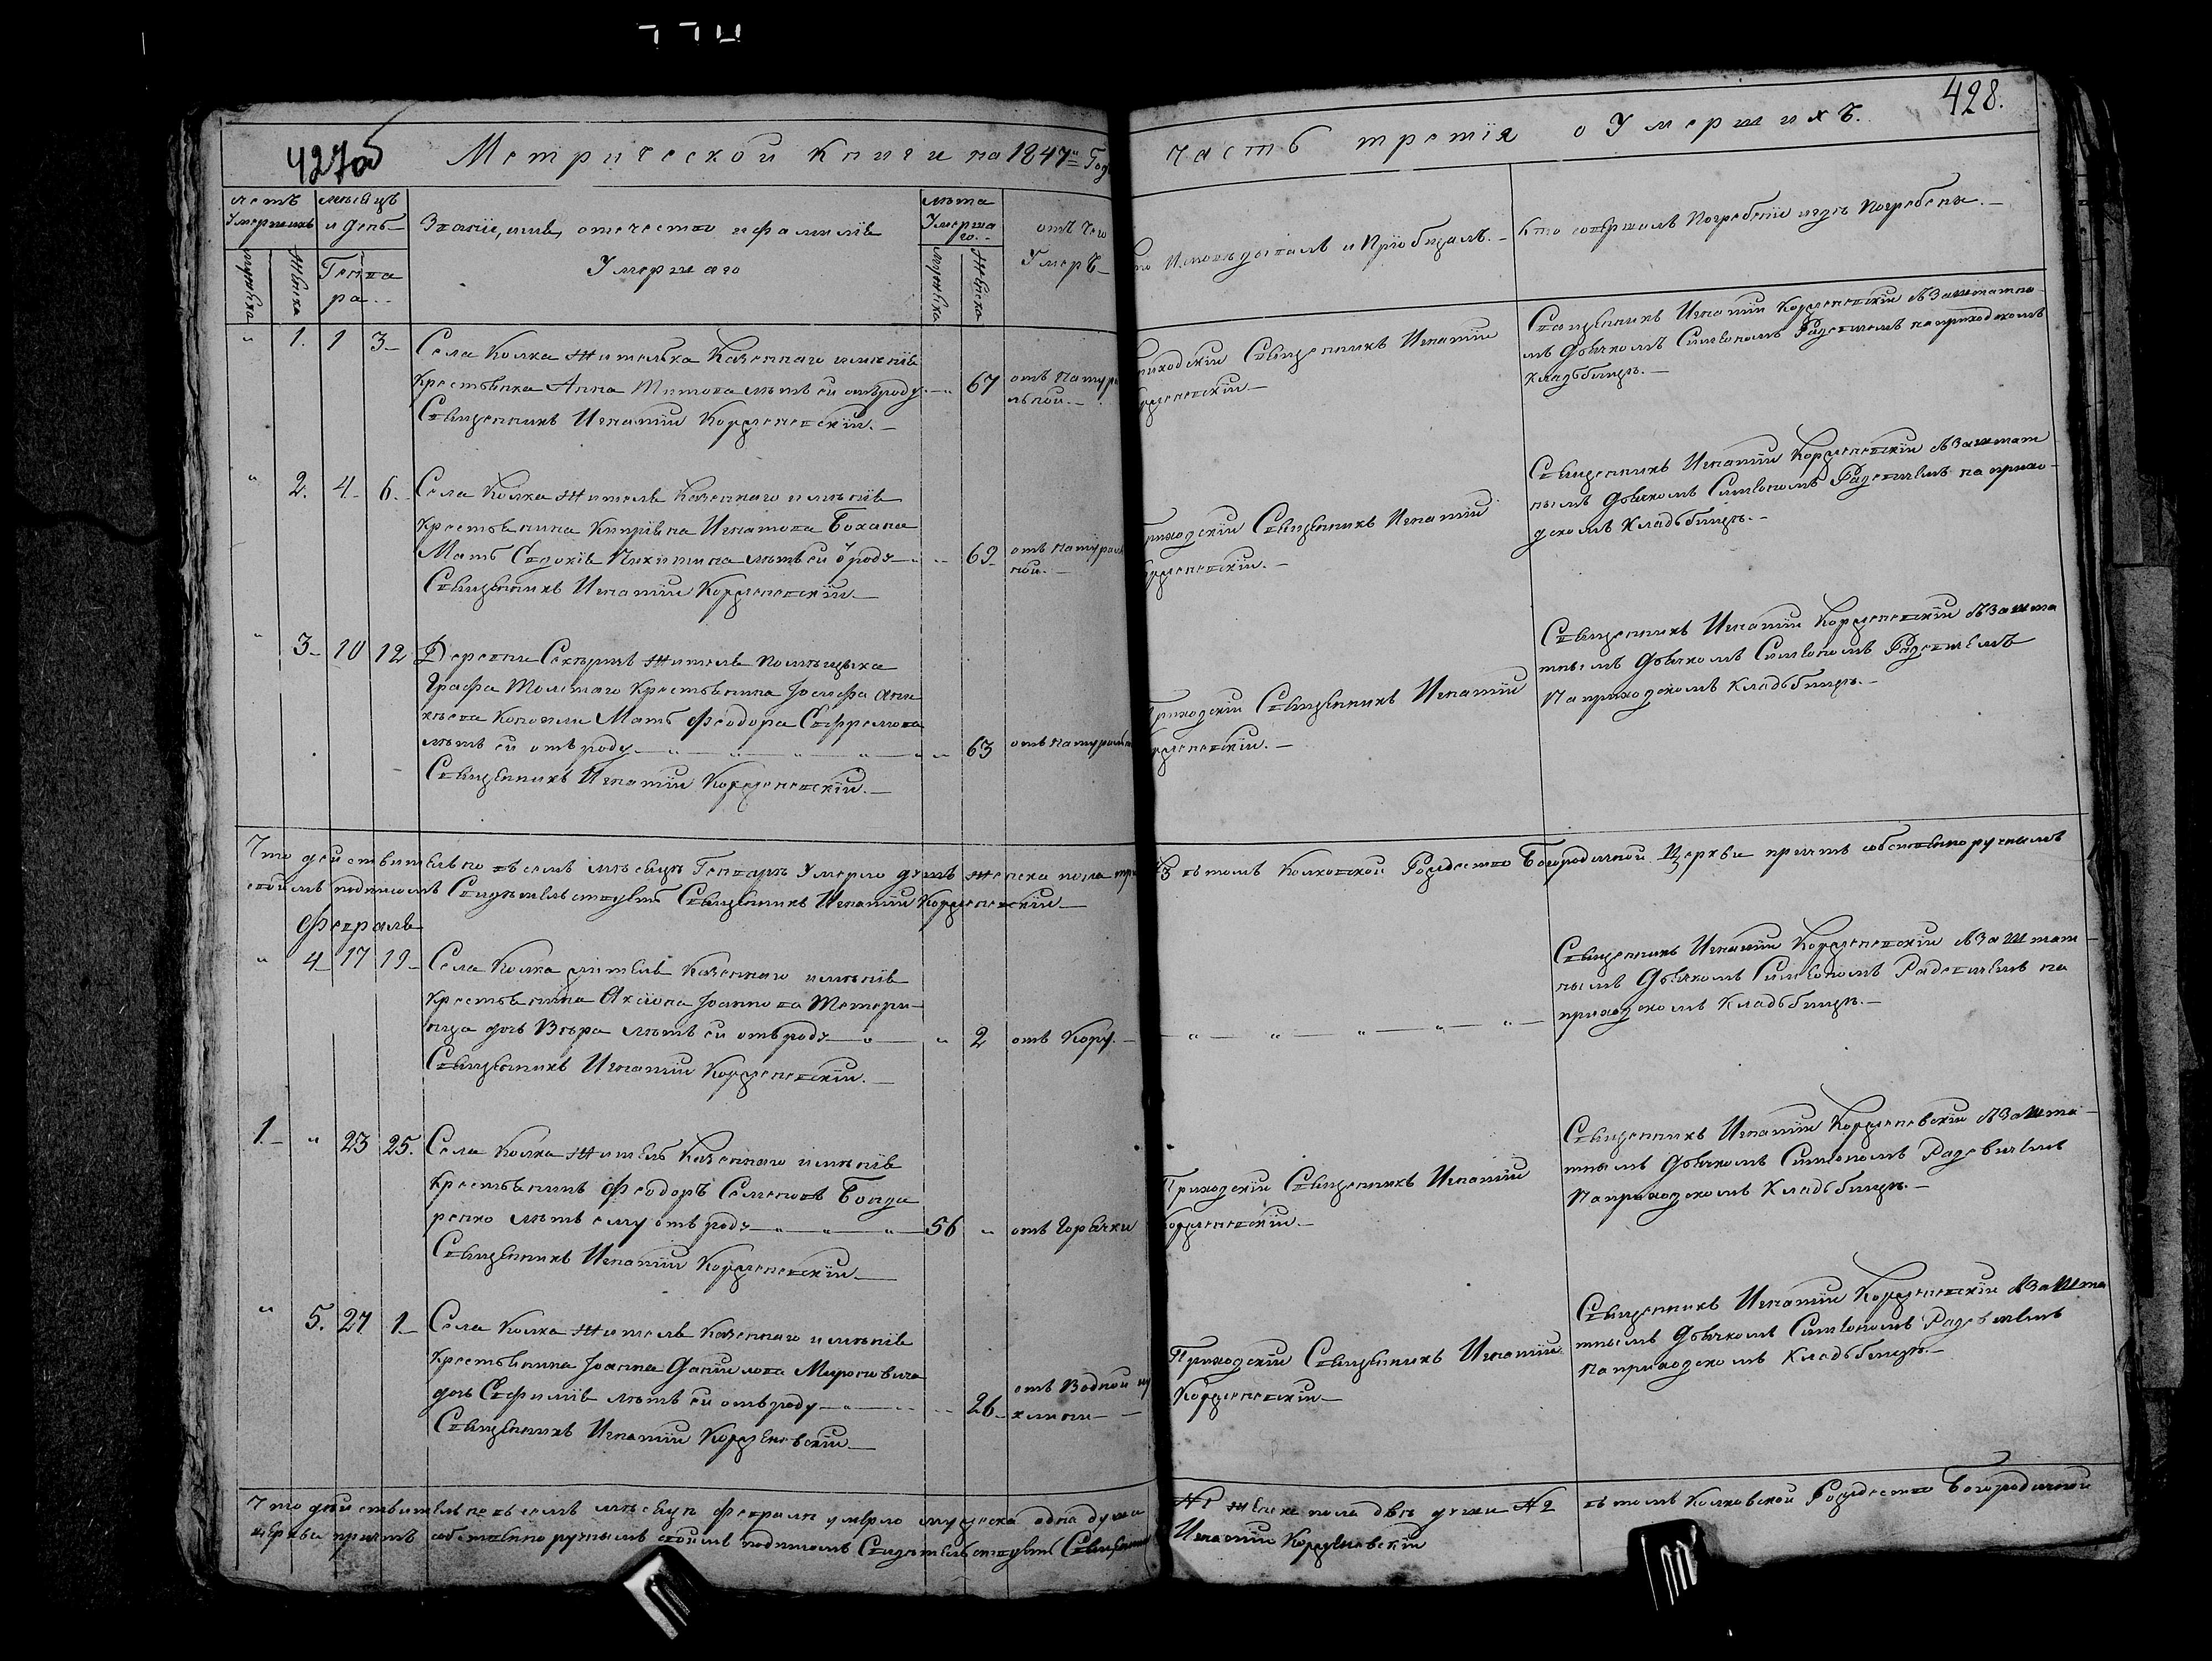 427об
Метрической книги на 1847й Годъ
часть третія о Умершихъ.
428.
счетъ
Умершихъ
мужеска
женска
месяцъ
и день
Генва
ра
Званіе, имя, отечество и фамилія
Умершаго
лѣта
Умерша
го.
мужеска
женска
отъ чего
Умеръ
Исповѣдывалъ и Пріобщалъ.
Кто совершалъ Погребеніе и гдѣ Погребены.
" 1. 1 3
Села Колка жителька Казеннаго имѣнія
Крестьянка Анна Титова лѣтъ ей отъ роду " 67
Священникъ Игнатій Коржен­евскій.
отъ натура
льной.
приходскій Священникъ Игнатій
Корженевскій.
Священникъ Игнатій Корженевскій съ Заштатны
мъ Дьячкомъ Симеономъ Радевичемъ на приходскомъ
Кладбищѣ.
" 2. 4 6.
Села Колка житель Казеннаго имѣнія
Крестьянина Кипріяна Игнатова Бохана
Мать Евдокія Никитина лѣтъ ей отроду " 69
Священникъ Игнатій Корженевскій
отъ натураль
ной.
Приходскій Священникъ Игнатій
Корженевскій.
Священникъ Игнатій Корженевскій съ Заштат
нымъ Дьячкомъ Симеономъ Радевичемъ на прихо
дскомъ Кладбищѣ.
" 3 10 12
Деревни жителя помѣщика
Графа Толстаго Крестьянина Іосифа
Коновки Мать Феодора Ефремова
лѣтъ ей отъ роду " 63
Священникъ Игнатій Корженевскій.
отъ натуральн
Приходскій Священникъ Игнатій
Корженевскій.
Священникъ Игнатій Корженевскій съ Зашта
тнымъ Дьячкомъ Симеономъ Радевичемъ
На приходскомъ Кладбищѣ.
Что дѣйствительно въ семъ мѣсецѣ Генварѣ Умерло душъ женска пола три №3 въ томъ Колковской Рождество Богородичной Церкви причтъ собственноручнымъ
своимъ подписомъ Свидѣтельствуетъ Священникъ Игнатій Корженевскій
Февраля
" 4 17 19
Села Колка житель Казеннаго имѣнія
Крестьянина Іоаннова Тетери
дочь Вѣра лѣтъ ей отъ роду " 2
Священникъ Игнатій Корженевскій.
отъ Кору.
Священникъ Игнатій Корженевскій съ Заштат
нымъ Дьячкомъ Симеономъ Радевичемъ на
приходскомъ Кладбищѣ.
1. " 23 25.
Села Колка житель Казеннаго имѣнія
Крестьянинъ Феодоръ Семеновъ Бонда
ренко лѣтъ ему отъ роду 56 "
Священникъ Игнатій Корженевскій
отъ Горячки
Приходскій Священникъ Игнатій
Корженевскій.
Священникъ Игнатій Корженевскій съ Зашта
тнымъ Дьячкомъ Симеономъ Радевичемъ
На приходскомъ Кладбищѣ.
" 5. 27 1
Села Колка житель Казеннаго имѣнія
Крестьянина Іоанна Данилова Мироновича
дочь Евфимія лѣтъ ей отъ роду " 26
Священникъ Игнатій Корженовскій
отъ Водной
Приходскій Священникъ Игнатій
Корженевскій
Священникъ Игнатій Корженевскій съ Зашта
тнымъ Дьячкомъ Симеономъ Радевичемъ
На приходскомъ Кладбищѣ.
Что дѣйствительно въ семъ мѣсецѣ Февралѣ умерло мужеска одна душа №1 женска пола двѣ души №2 въ томъ Колковской Рождество Богородичной
Церкви причтъ собственноручнымъ своимъ подписомъ Свидѣтельствуетъ Священникъ Игнатій Корженовскій